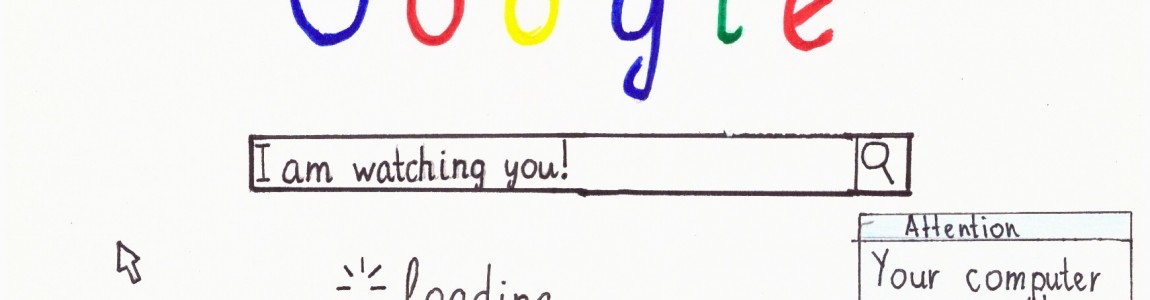 Google
I am watching you!
Attention
Your computer
loading